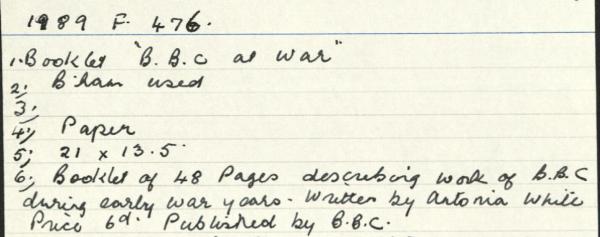 1989 F. 476.
1. Booklet "B.B.C at War"
2; B'ham used
3;
4; Paper
5; 21 x 13.5
6; Booklet of 48 Pages describing work of B.B.C
during early war years. Written by Antonia White
Price 6d. Published by B.B.C.